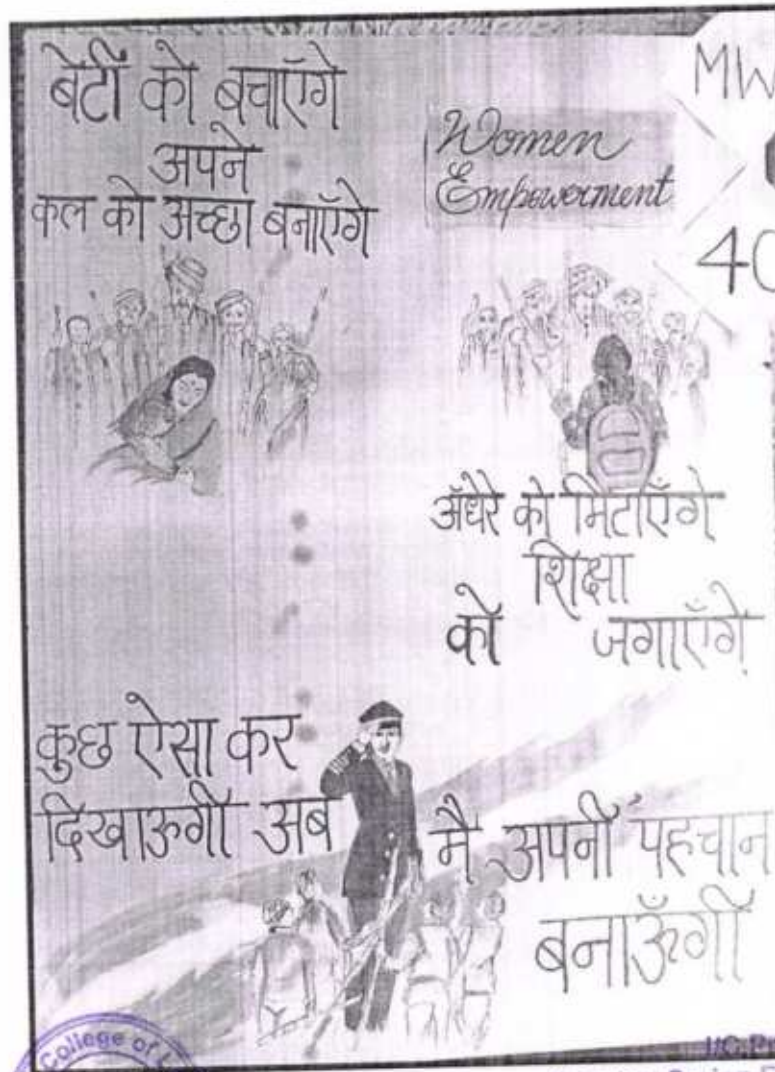 बेटी को बचाएँगे
अपने
कल को अच्छा बनाएँगे
Women
Empowerment
MW
40
अँधेरे को मिटाएँगे
शिक्षा
को जगाएँगे
कुछ ऐसा कर
दिखाऊगी अब
मै अपनी पहचान
बनाऊँगी
College of